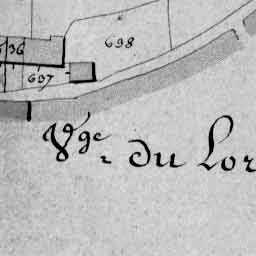 698
36
697
Vge du Lor